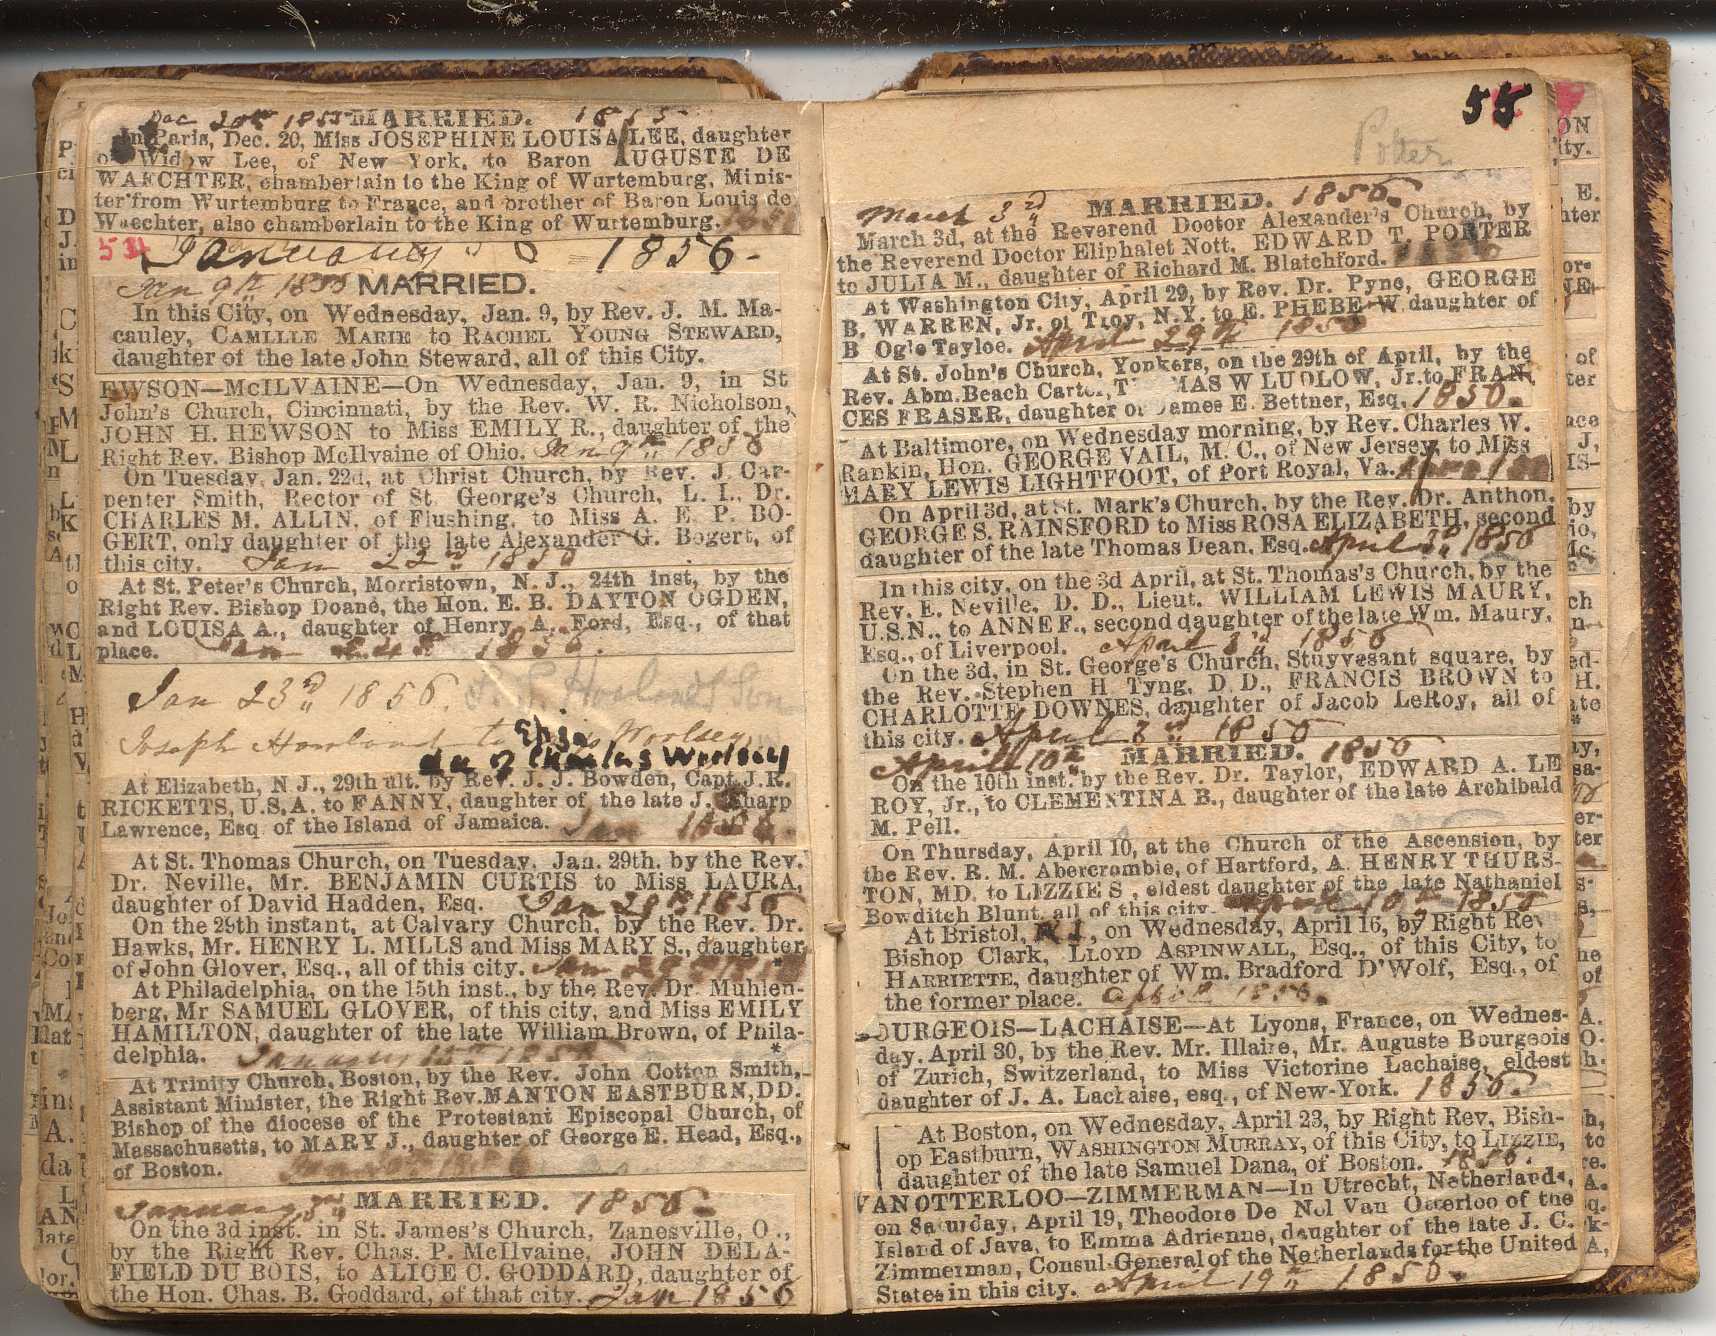 Dec 20th 1855 MARRIED. 1855
In Paris, Dec. 20, Miss JOSEPHINE LOUISA LEE, daughter
of Widow Lee, of New York, to Baron AUGUSTE DE
WAECHTER, chamberlain to the King of Wurtemburg, Minis-
ter from Wurtemburg to France, and brother of Baron Louis de
Waechter, also chamberlain to the King of Wurtemburg.
54 January 1856.
Jan 9th MARRIED.
In this City, on Wednesday, Jan. 9, by Rev. J. M. Ma-
cauley, CAMILLE MARIE to RACHEL YOUNG STEWARD,
daughter of the late John Steward, all of this City.
EWSON—McILVAINE—On Wednesday, Jan. 9, in St
John's Church, Cincinnati, by the Rev. W. R. Nicholson,
JOHN H. HEWSON to Miss EMILY R., daughter of the
Right Rev. Bishop McIlvaine of Ohio. Jan 9th 1856
On Tuesday, Jan. 22d, at Christ Church, by Rev. J. Car-
penter Smith, Rector of St. George's Church, L. I., Dr.
CHARLES M. ALLIN, of Flushing, to Miss A. E. P. BO-
GERT, only daughter of the late Alexander G. Bogert, of
this city. Jan 22d 1856
At St. Peter's Church, Morristown, N. J., 24th inst, by the
Right Rev. Bishop Doane, the Hon. E. B. DAYTON OGDEN,
and LOUISA A., daughter of Henry A. Ford, Esq., of that
place. Jan 24th 1856.
Jan 23rd 1856. Howland Son
Joseph Howland to Eliza Woolsey
da of Charles Woolsey
At Elizabeth, N J., 29th ult. by Rev. J. J. Bowden, Capt. J. R.
RICKETTS, U.S.A. to FANNY, daughter of the late J. Sharp
Lawrence, Esq of the Island of Jamaica. Jan 1856.
At St. Thomas Church, on Tuesday, Jan. 29th, by the Rev.
Dr. Neville, Mr. BENJAMIN CURTIS to Miss LAURA,
daughter of David Hadden, Esq. Jan 29th 1856
On the 29th instant, at Calvary Church, by the Rev. Dr.
Hawks, Mr. HENRY L. MILLS and Miss MARY S., daughter
of John Glover, Esq., all of this city. Jan 29th 1856
At Philadelphia, on the 15th inst., by the Rev. Dr. Muhlen-
berg, Mr SAMUEL GLOVER, of this city, and Miss EMILY
HAMILTON, daughter of the late William Brown, of Phila-
delphia. January 15th 1856 *
At Trinity Church, Boston, by the Rev. John Cotton Smith,
Assistant Minister, the Right Rev. MANTON EASTBURN, DD.
Bishop of the diocese of the Protestant Episcopal Church, of
Massachusetts, to MARY J., daughter of George E. Head, Esq.,
of Boston.
January 3rd MARRIED. 1856.
On the 3d inst. in St. James's Church, Zanesville, O.,
by the Right Rev. Chas. P. McIlvaine, JOHN DELA-
FIELD DU BOIS, to ALICE C. GODDARD, daughter of
the Hon. Chas. B. Goddard, of that city. Jan 1856
55
Potter
March 3rd MARRIED. 1856.
March 3d, at the Reverend Doctor Alexander's Church, by
the Reverend Doctor Eliphalet Nott, EDWARD T. PORTER
to JULIA M., daughter of Richard M. Blatchford.
At Washington City, April 29, by Rev. Dr. Pyne, GEORGE
B. WARREN, Jr. of Troy, N.Y. to E. PHEBE W daughter of
B Ogle Tayloe. April 29th 1856
At St. John's Church, Yonkers, on the 29th of April, by the
Rev. Abm. Beach Carter, T MAS W LUDLOW, Jr. to FRAN
CES FRASER, daughter of James E. Bettner, Esq. 1856.
At Baltimore, on Wednesday morning, by Rev. Charles W.
Rankin, Hon. GEORGE VAIL, M. C., of New Jersey, to Miss
MARY LEWIS LIGHTFOOT, of Port Royal, Va.
On April 3d, at St. Mark's Church, by the Rev. Dr. Anthon,
GEORGE S. RAINSFORD to Miss ROSA ELIZABETH, second
daughter of the late Thomas Dean, Esq. April 3d 1856
In this city, on the 3d April, at St. Thomas's Church, by the
Rev. E. Neville, D. D., Lieut. WILLIAM LEWIS MAURY,
U.S.N., to ANNE F., second daughter of the late Wm. Maury,
Esq., of Liverpool. April 3rd 1856
On the 3d, in St. George's Church, Stuyvesant square, by
the Rev. Stephen H Tyng, D. D., FRANCIS BROWN to
CHARLOTTE DOWNES, daughter of Jacob LeRoy, all of
this city. April 3rd 1856
April 10th MARRIED. 1856
On the 10th inst. by the Rev. Dr. Taylor, EDWARD A. LE
ROY, Jr., to CLEMENTINA B., daughter of the late Archibald
M. Pell.
On Thursday, April 10, at the Church of the Ascension, by
the Rev. R. M. Abercrombie, of Hartford, A. HENRY THURS-
TON, MD. to LIZZIE S, eldest daughter of the late Nathaniel
Bowditch Blunt, all of this city. April 10th 1856
At Bristol, , on Wednesday, April 16, by Right Rev
Bishop Clark, LLOYD ASPINWALL, Esq., of this City, to
HARRIETTE, daughter of Wm. Bradford D'Wolf, Esq., of
the former place. April 1856.
OURGEOIS—LACHAISE—At Lyons, France, on Wednes-
day, April 30, by the Rev. Mr. Illaire, Mr. Auguste Bourgeois
of Zurich, Switzerland, to Miss Victorine Lachaise, eldest
daughter of J. A. Lachaise, esq., of New-York. 1856.
At Boston, on Wednesday, April 23, by Right Rev, Bish-
op Eastburn, WASHINGTON MURRAY, of this City, to LIZZIE,
daughter of the late Samuel Dana, of Boston. 1856.
VAN OTTERLOO—ZIMMERMAN—In Utrecht, Netherlands,
on Saturday, April 19, Theodore De Nol Van Otterloo of the
Island of Java, to Emma Adrienne, daughter of the late J. C.
Zimmerman, Consul-General of the Netherlands for the United
States in this city. April 19th 1856.